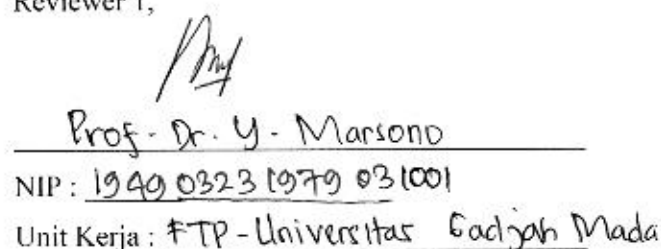 Reviewer 1,
Prof. Dr. Y. Marsono
NIP : 19490323 1979 031001
Unit Kerja : FTP - Universitas Gadjah Mada